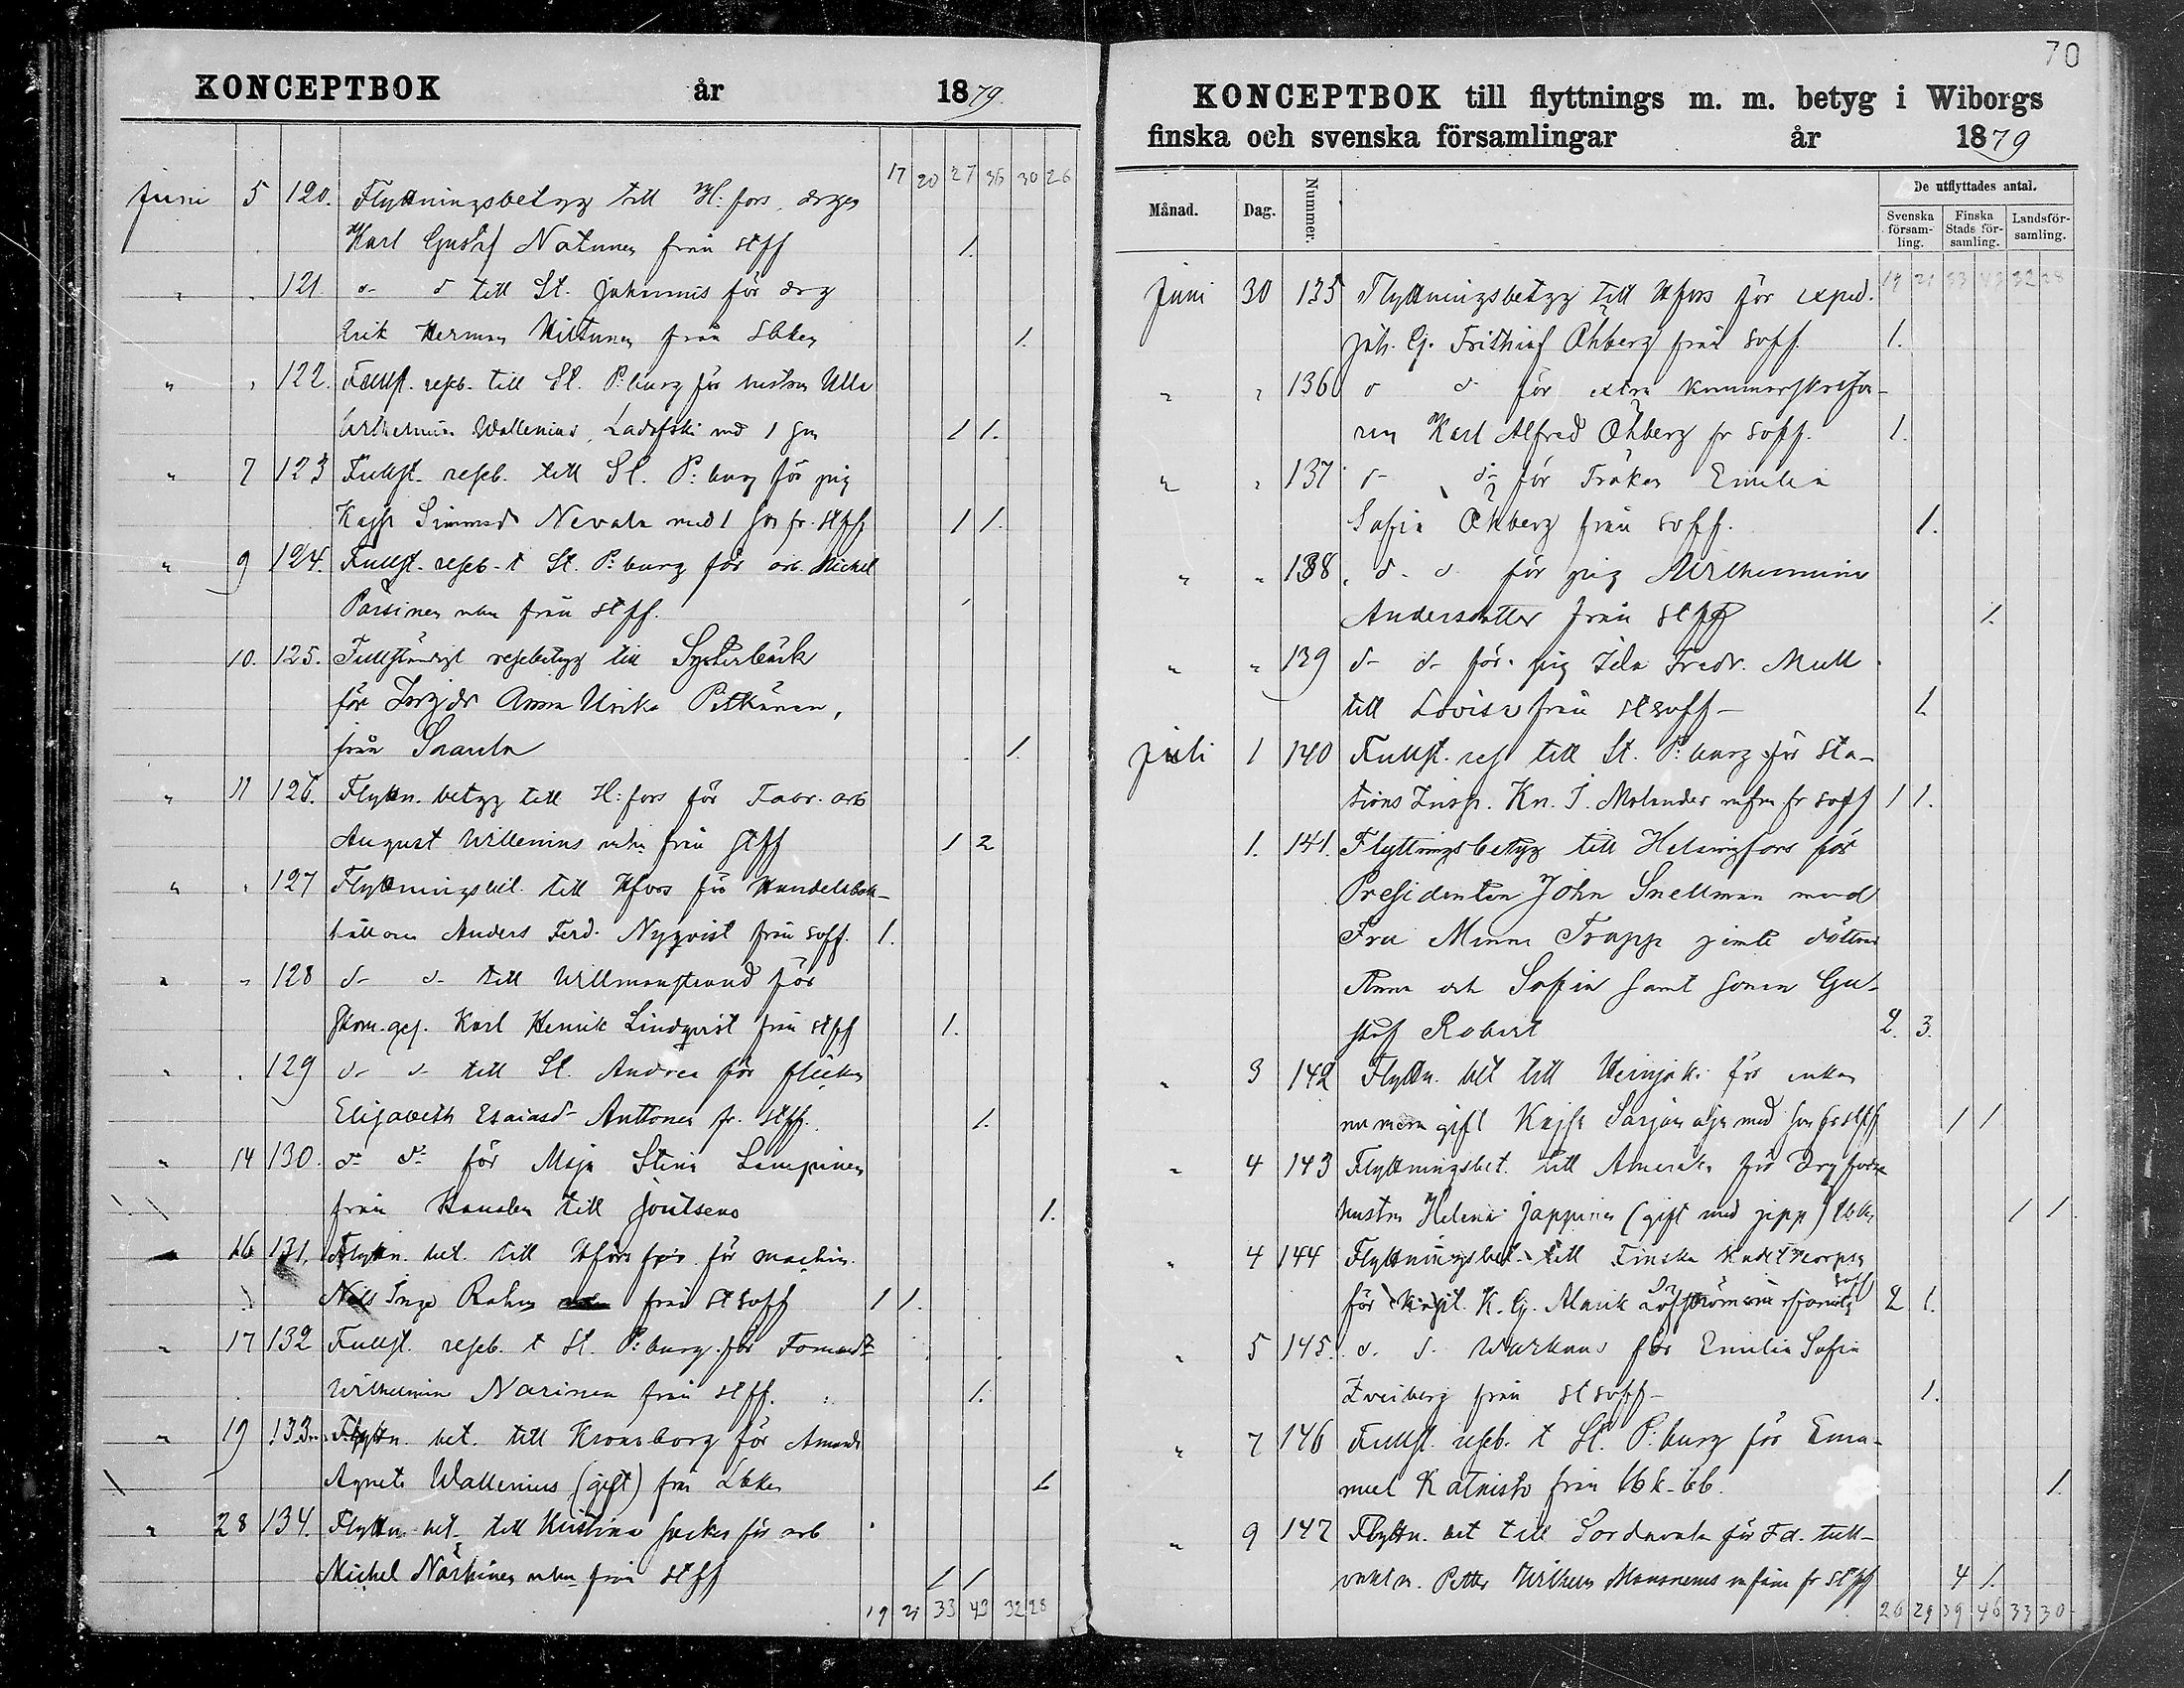 KONCEPTBOK år 1879.
17 20 27 35 30 26
Juni 5 120. Flyttningsbetyg till H:fors drgen
Karl Gustaf Notunen från stff 1.
" " 121. d- d till St. Johannis för drg
Erik Herman Hiltunen från 1.
" " 122. Fullst. reseb. till St. P:burg för hustru Ulla
Wilhelmina Wallenius, med 1 son 1 1.
" 7 123 Fullst. reseb. till St. P:burg för pig
Kajsa Simonsd Nevala med 1 son fr. stff 1 1.
" 9 124. Fullst. reseb. t St. P:burg för arb. Michel
Pärsinen från stff.
10. 125. Fullständigt resebetyg till Systerbäck
för Anna Ulrika Pitkänen,
från 1.
" 11 126. Flyttn. betyg till H:fors för arb
August Willenius från stff 1 2
" " 127 Flyttningsbet. till Hfors för Handelsbok-
hållaren Anders Ferd. Nyqvist från soff. 1.
" " 128 d- d- till Willmanstrand för
Karl Henrik Lindqvist från stff 1.
" " 129 d- d- till St. Andrea för flickan
Elisabeth Esaiasd- Anttonen fr. stff. 1.
" 14 130. d- d- för Maja Stina Lampinen
från till Joutseno 1.
" 16 131. Flyttn. bet. till Hfors för machin.
Nils Inge från st soff 1 1.
" 17 132 Fullst. reseb. t St. P:burg för
Wilhelmina Narinen från stff. 1.
" 19 133. Flyttn. bet. till Kronoborg för Amanda
Agneta Wallenius (gift) från 1
" 28 134. Flyttn. bet. till Kristina för arb
Michel från stff 1 1
19 21 33 43 32 28
70
KONCEPTBOK till flyttnings m. m. betyg i Wiborgs
finska och svenska församlingar år 1879
Månad. Dag. Nummer. De utflyttades antal.
Svenska försam-ling. Finska Stads för-samling. Landsför-samling.
19 21 33 43 32 28
Juni 30 135 Flyttningsbetyg till Hfors för exped.
Joh. G. Frithiof Öhberg från soff. 1.
" " 136 d d för extra
Karl Alfred Öhberg fr soff. 1.
" " 137 d- d- för Fröken Emilia
Sofia Öhberg från soff. 1.
" " 138 d- d för pig Wilhelmina
Andersdotter från stff 1.
" " 139 d- d- för pig Ida Fredr. Mull
till Lovisa från st soff - 1
Juli 1 140 Fullst. res till St. P:burg för Sta-
tions Insp. Kn. J. Molander fr soff 1 1.
1. 141. Flyttningsbetyg till Helsingfors för
Presidenten John Snellman med
Fru Minna Trapp jemte döttrar
Anna och Sofia samt sonen Gu-
staf Robert 2. 3.
" 3 142 Flyttn. bet till Heinjoki för enkan
nu mera gift Kajsa med son fr stff 1 1
" 4 143 Flyttningsbet. till Amerika för
hustru Helena Jappinen (gift med 1 1.
" 4 144 Flyttningsbet. till Finska Kadettkorpsen
för Kapit. K. G. Alarik Löfström soff 2 1.
" 5 145. d. d. Warkaus för Emilia Sofia
Zweiberg från st soff - 1.
" 7 146 Fullst. reseb. t St. P:burg för Ema-
nuel Katnisto från 1.
" 9 147 Flyttn. bet till Sordavala för Fd. tull-
vakt. Petter Wilhelm fr stff 4 1.
26 29 39 46 33 30